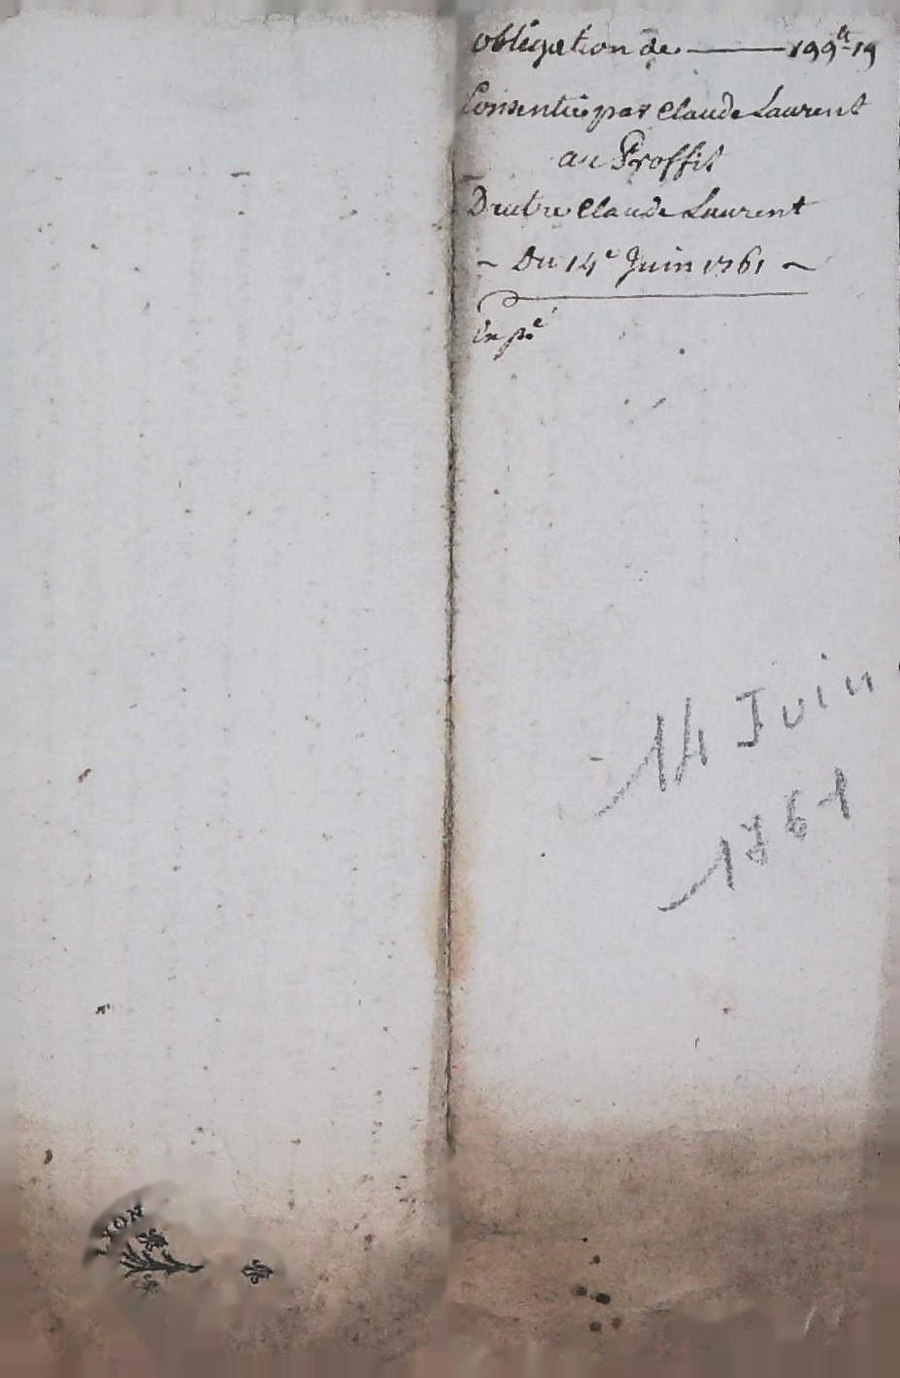 obligation de ——— 199tt-19
Consentie par Claude Laurent
au Proffit
D'autre Claude Laurent
~ Du 14e Juin 1761 ~
Expé
14 Juin
1761
LYON